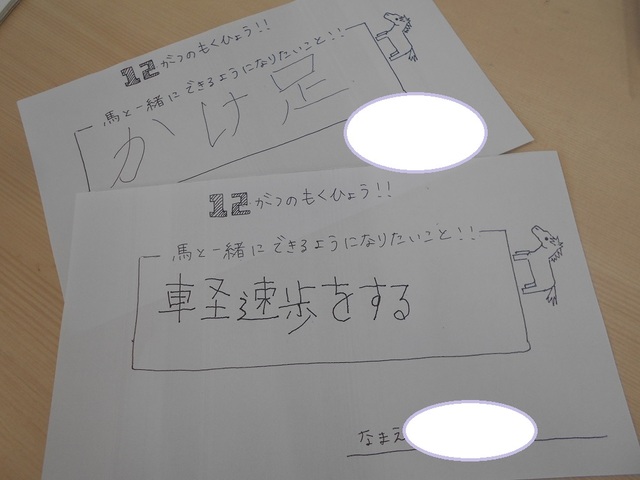 12がつのもくひょう!!
馬と一緒にできるようになりたいこと!!
かけ足
12がつのもくひょう!!
馬と一緒にできるようになりたいこと!!
軽速歩をする
なまえ